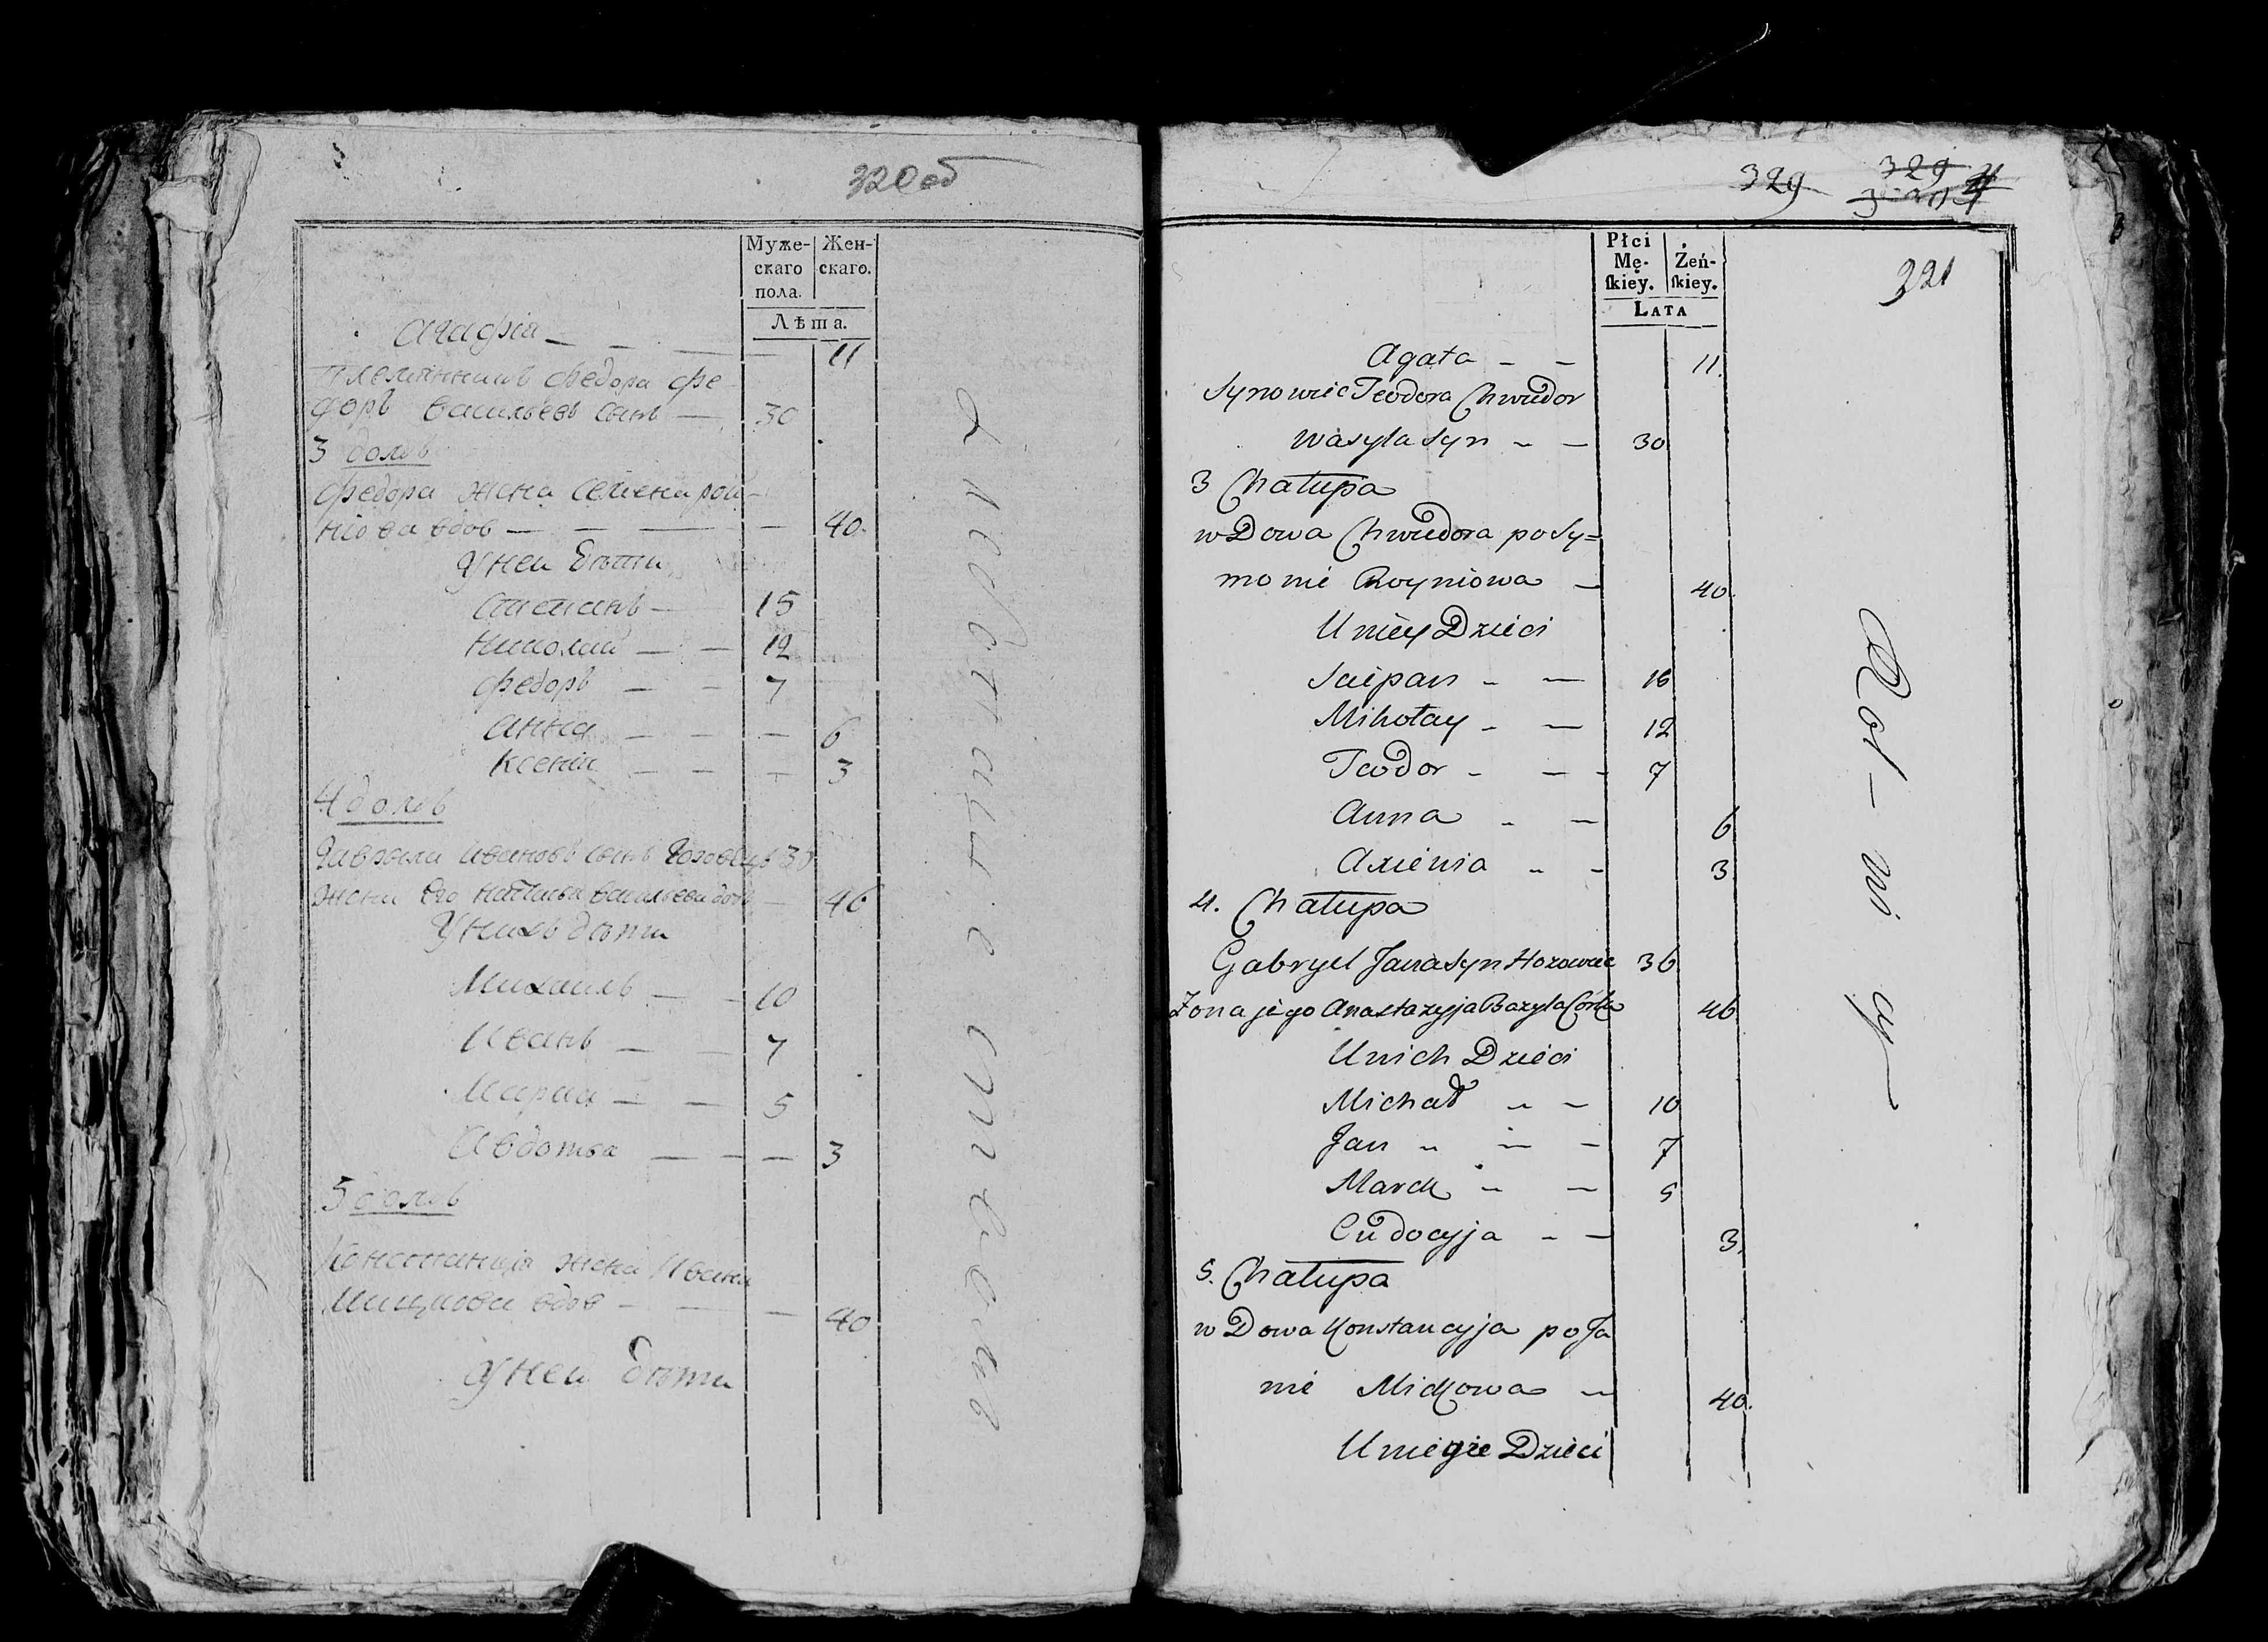 320 об
Муже-
скаго
пола.
Жен-
скаго.
Лѣта.
Агафія — — — 11
Племянникъ Федора Фе-
доръ Васильевъ сынъ — 30
3 домъ
Федора жена Семена Рой-
нюва вдов — — — — 40.
У неи дѣти
Степанъ — 15
Николай — — 12
Федоръ — — 7
Анна — — — 6
Ксенія — — — 3
4 домъ
Гаврыла Ивановъ сынъ 36
жена его Васильева доч — 46
У нихъ дѣти
Михаилъ — — 10
Иванъ — — 7
— — 5
Авдотья — — — 3
5 домъ
Констанція жена Ивана
Мицкова вдов — — — 40
У неи дѣти
329
329
321
Płci
Mę-
ſkiey.
Żeń-
ſkiey.
LATA
Agata - - 11.
Synowiec Teodora Chwedor
Wasyla syn - - 30
3 Chałupa
wDowa Chwedora po Sy=
monie Royniowa - 40.
U niey Dzieci
Sciepan - - 16
Mikołay - - 12
Teodor - - - 7
Anna - - 6
Axienia - - 3
4. Chałupa
Gabryel Jana syn Hozowiec 36
Żona jego Anastazyja Bazyla Córka 46
U nich Dzieci
Michał - - 10
Jan - - - 7
Marek - - 5
Eudocyja - - 3.
5. Chałupa
wDowa Konstancyja po Ja
nie Mickowa - 40.
U nieyże Dzieci